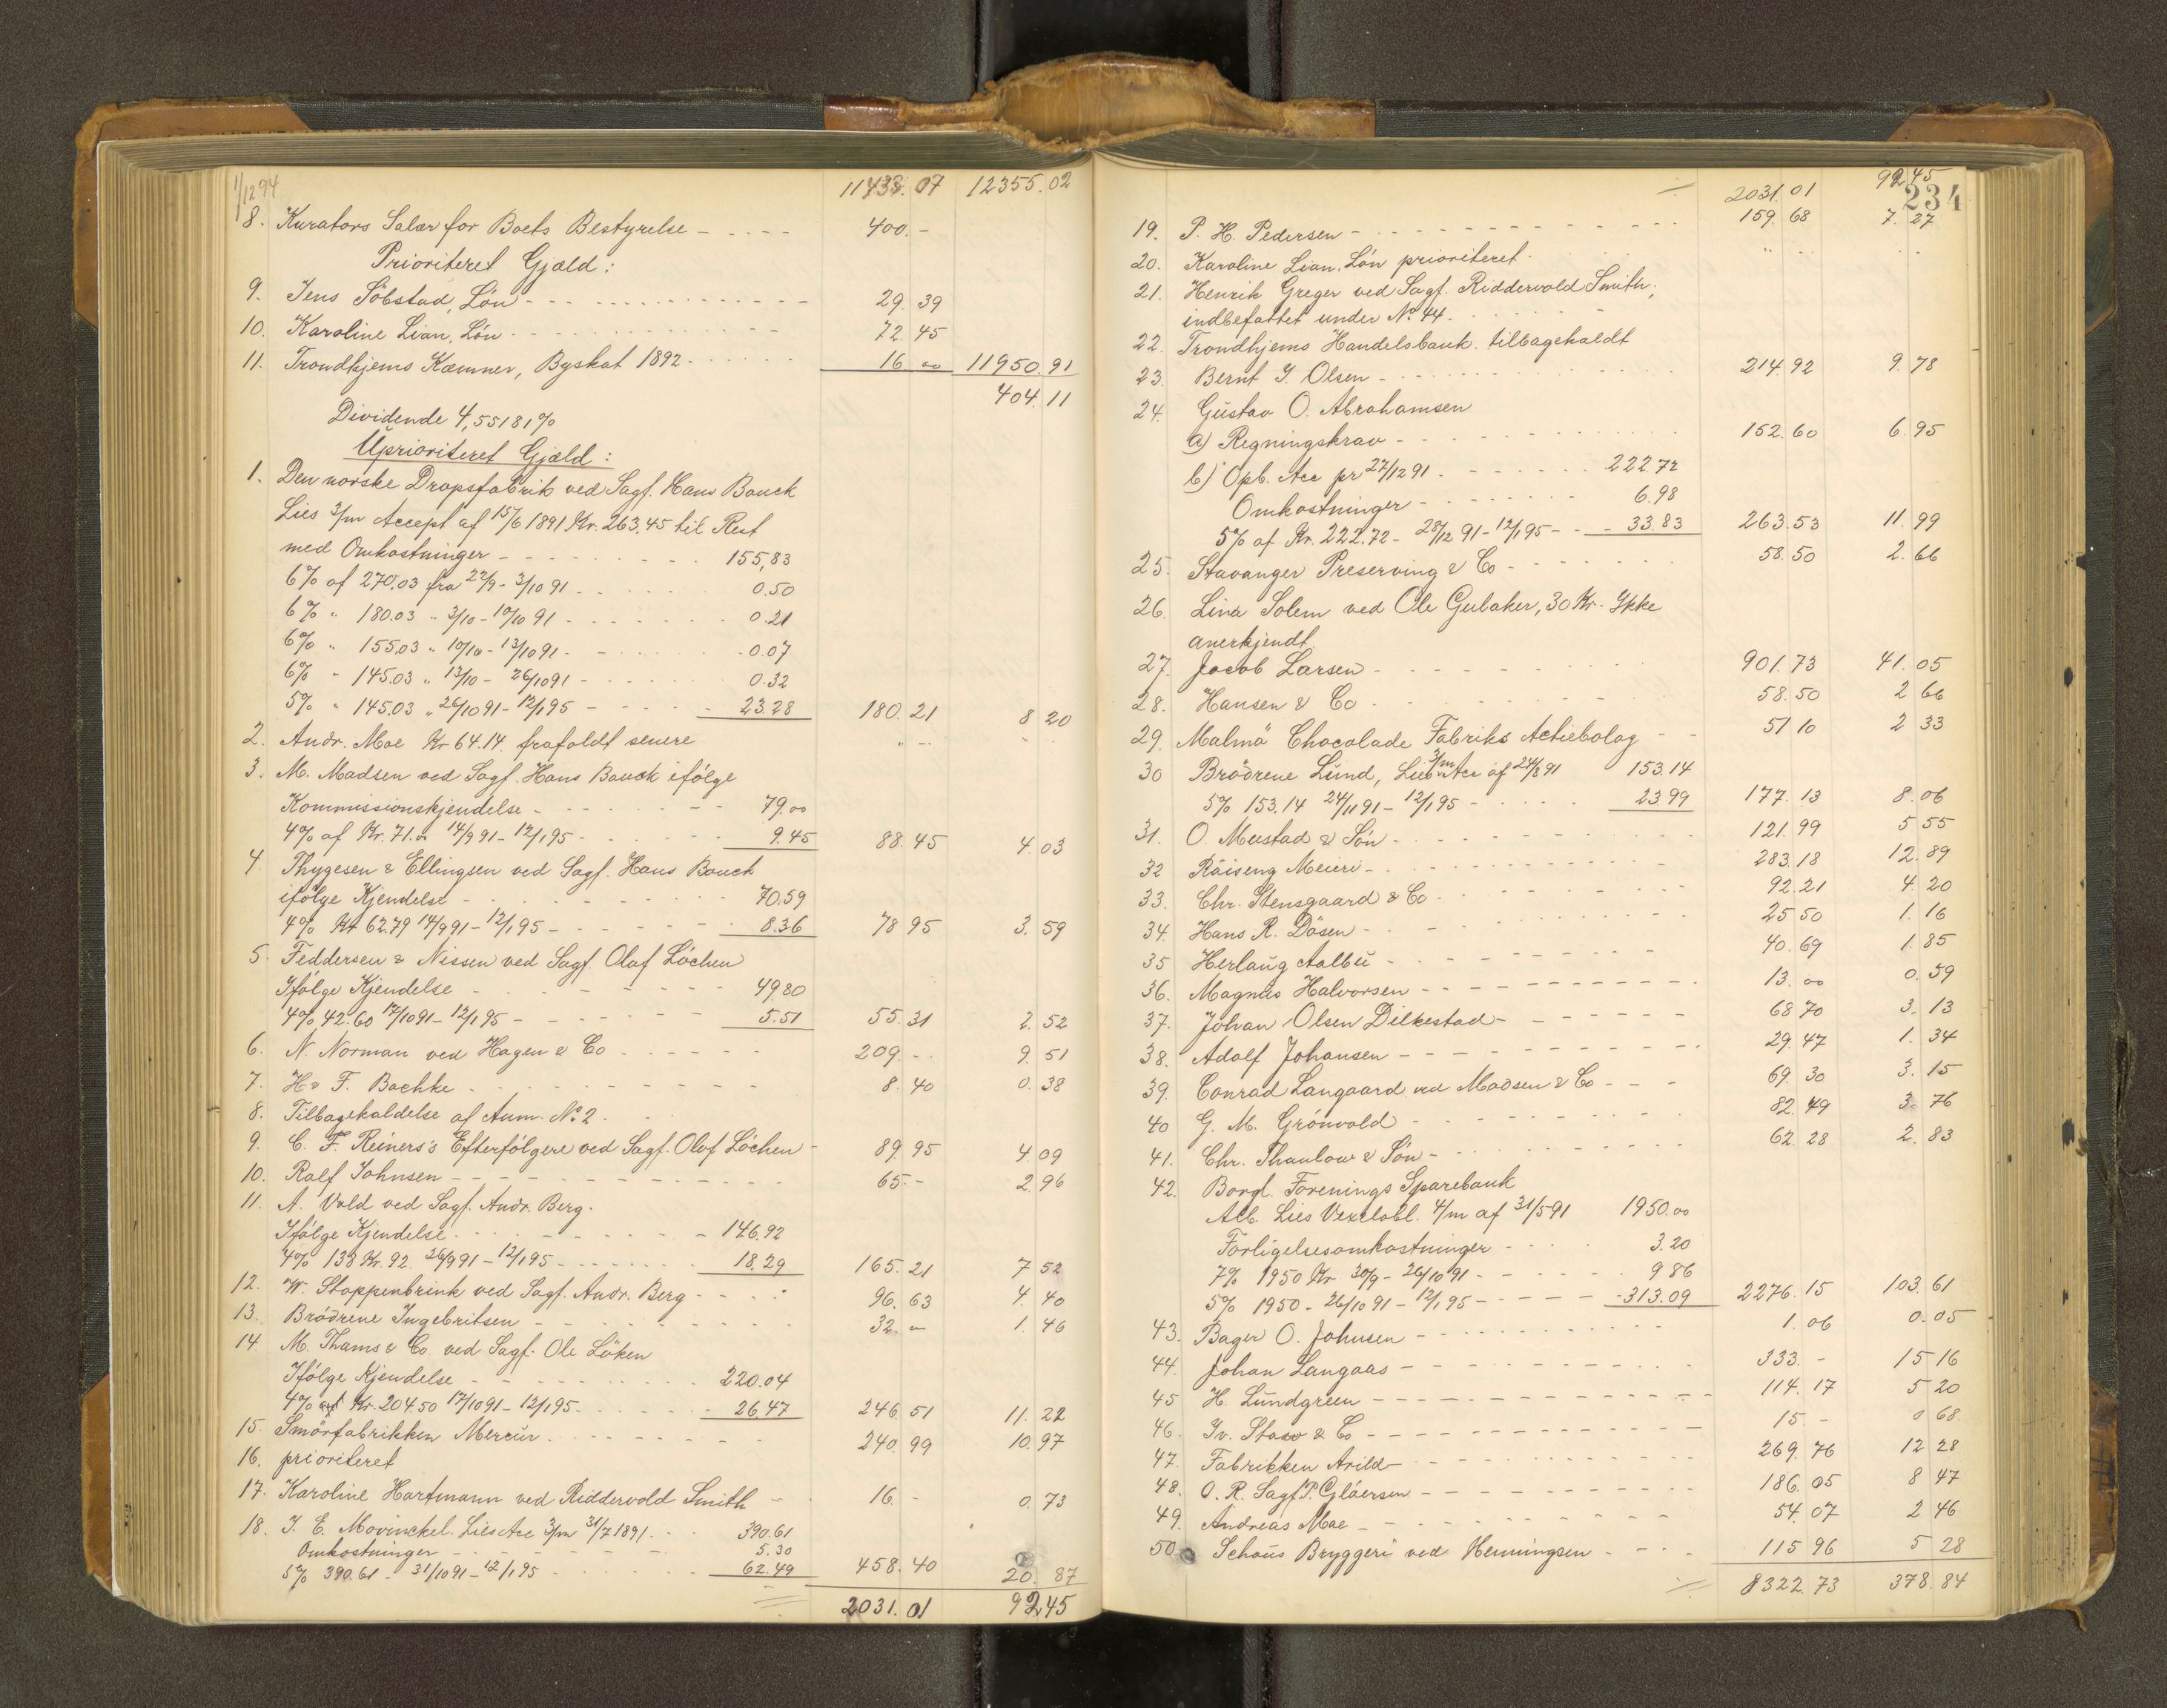 1/12 94
11433.07 12355.02
8. Kurators Salær for Boets Bestyrelse - - - - - 400.-
Prioriteret Gjæld:
9. Jens Söbstad, Lön - - - 29.39
10. Karoline Lian, Lön - - - 72.45
11. Trondhjems Kæmner, Byskat 1892 - - - 16 00 11950.91
404.11
Dividende 4,55181%
Uprioriteret Gjæld:
1. Den norske Dropsfabrik ved Sagf. Hans Bauck
Lies 3/m Accept af 15/6 1891 Kr. 263.45 til Rest
med Omkostninger - - - 155,83
6% af 270.03 fra 22/9 - 3/10 91 - - - 0.50
6% " 180.03 " 3/10 - 10/10 91 - - - 0.21
6% " 155.03 " 10/10 - 13/10 91 - - - 0.07
6% " 145.03 " 13/10 - 26/10 91 - - - 0.32
5% " 145.03 " 26/10 91 - 12/1 95 - - - 23.28 180.21 8 20
2. Andr. Moe Kr 64.14. frafaldt senere " -- " -
3. M. Madsen ved Sagf. Hans Bauck ifölge
Kommissionskjendelse - - - 79.00
4% af Kr. 71.00 14/9 91 - 12/1 95 - - - 9.45 88.45 4.03
4. Thygesen & Ellingsen ved Sagf. Hans Bauck
ifölge Kjendelse - - - 70.59
4% Kr 62.79 14/9 91 - 12/1 95 - - - 8.36 78 95 3.59
5. Feddersen & Nissen ved Sagf. Olaf Löchen
Ifölge Kjendelse - - - 49.80
4% 42.60 17/10 91 - 12/1 95 - - - 5.51 55.31 2.52
6. N. Norman ved Hagen & Co - - - 209.- 9.51
7. H & F. Bachke - - - 8.40 0.38
8. Tilbagekaldelse af Anm. No 2.
9. C. F. Reiners's Efterfölgere ved Sagf. Olaf Löchen - 89.95 4 09
10. Ralf Johnsen - - - 65.- 2.96
11. A. Vold ved Sagf. Andr. Berg.
Ifölge Kjendelse - - - 146.92
4% 138 Kr. 92. 26/9 91 - 12/1 95 - - - 18.29 165.21 7 52
12. W. Stoppenbrink ved Sagf. Andr. Berg - - - 96.63 4.40
13. Brödrene Ingebritsen - - - 32.- 1.46
14. M. Thams & Co. ved Sagf. Ole Löken
Ifölge Kjendelse - - - 220.04
4% af Kr. 204.50 17/10 91 - 12/1 95 - - - 26.47 246 51 11.22
15. Smörfabrikken Mercur - - - 240.99 10.97
16. prioriteret
17. Karoline Hartmann ved Riddervold Smith - 16.- 0.73
18. J. E. Movinckel. Lies Acc 3/m 31/7 1891 - - - 390.61
Omkostninger - - - 5.30
5% 390.61 - 31/10 91 - 12/1 95 - - - 62.49 458.40 20.87
2031.01 92.45
2031.01 92.45
234
19. P. H. Pedersen - - - 159.68 7.27
20. Karoline Lian. Lön prioriteret.
21. Henrik Greger ved Sagf. Riddervold Smith,
indbefattet under No 44.
22. Trondhjems Handelsbank. tilbagekaldt
23. Bernt J. Olsen - - - 214.92 9.78
24. Gustav O. Abrahamsen
a) Regningskrav - - - 152.60 6.95
b) Opb. Acc pr 27/12 91 - - - 222.72
Omkostninger - - - 6.98
5% af Kr. 222.72 - 28/12 91 - 12/1 95 - - 33.83 263.53 11.99
25. Stavanger Preserving & Co - - - 58.50 2.66
26. Lina Solem ved Ole Gulaker, 30 Kr. Ikke
anerkjendt
27. Jacob Larsen - - - 901.73 41.05
28. Hansen & Co - - - 58.50 2 66
29. Malmö Chocolade Fabriks Actiebolag - - 51 10 2 33
30 Brödrene Lund, Lies 3/m Acc af 24/8 91 153.14
5% 153.14 24/11 91 - 12/1 95 - - - 23.99 177.13 8.06
31. O. Mustad & Sön - - - 121.99 5 55
32 Röiseng Meieri - - - 283.18 12.89
33. Chr. Stensgaard & Co - - - 92.21 4.20
34. Hans R. Dösen - - - 25 50 1.16
35 Herlaug Aalbu - - - 40.69 1.85
36. Magnus Halvorsen - - - 13.00 0.59
37. Johan Olsen Dilkestad - - - 68 70 3.13
38. Adolf Johansen - - - 29.47 1.34
39. Conrad Langaard ved Madsen & Co - - - 69.30 3.15
40 G. M. Grönvold - - - 82.49 3.76
41. Chr. Thaulow & Sön - - - 62.28 2.83
42. Borgl. Forenings Sparebank
Alb. Lies Vexelobl. 4/m af 31/5 91 1950.00
Forligelsesomkostninger - - - 3.20
7% 1950 Kr 30/9 - 26/10 91 - - - 9 86
5% 1950 - 26/10 91 - 12/1 95 - - - 313.09 2276.15 103.61
43. Bager O. Johnsen - - - 1.06 0.05
44. Johan Langaas - - - 333.- 15 16
45 H. Lundgreen - - - 114.17 5 20
46. Iv. Staw & Co - - - 15.- 0 68
47. Fabrikken Arild - - - 269.76 12 28
48. O. R. Sagf. P. Gläersen - - - 186.05 8 47
49. Andreas Moe - - - 54.07 2 46
50. Schous Bryggeri ved Henningsen - - - 115 96 5 28
8322.73 378.84